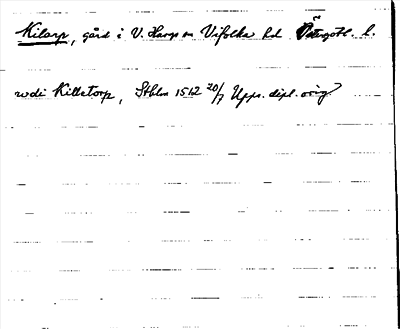 Kilarp, gård i V. Hargs sn Vifolka hd Östergötl. l.
wdi Killetorp, Sthlm 1512 20/7 Upps. dipl. orig.